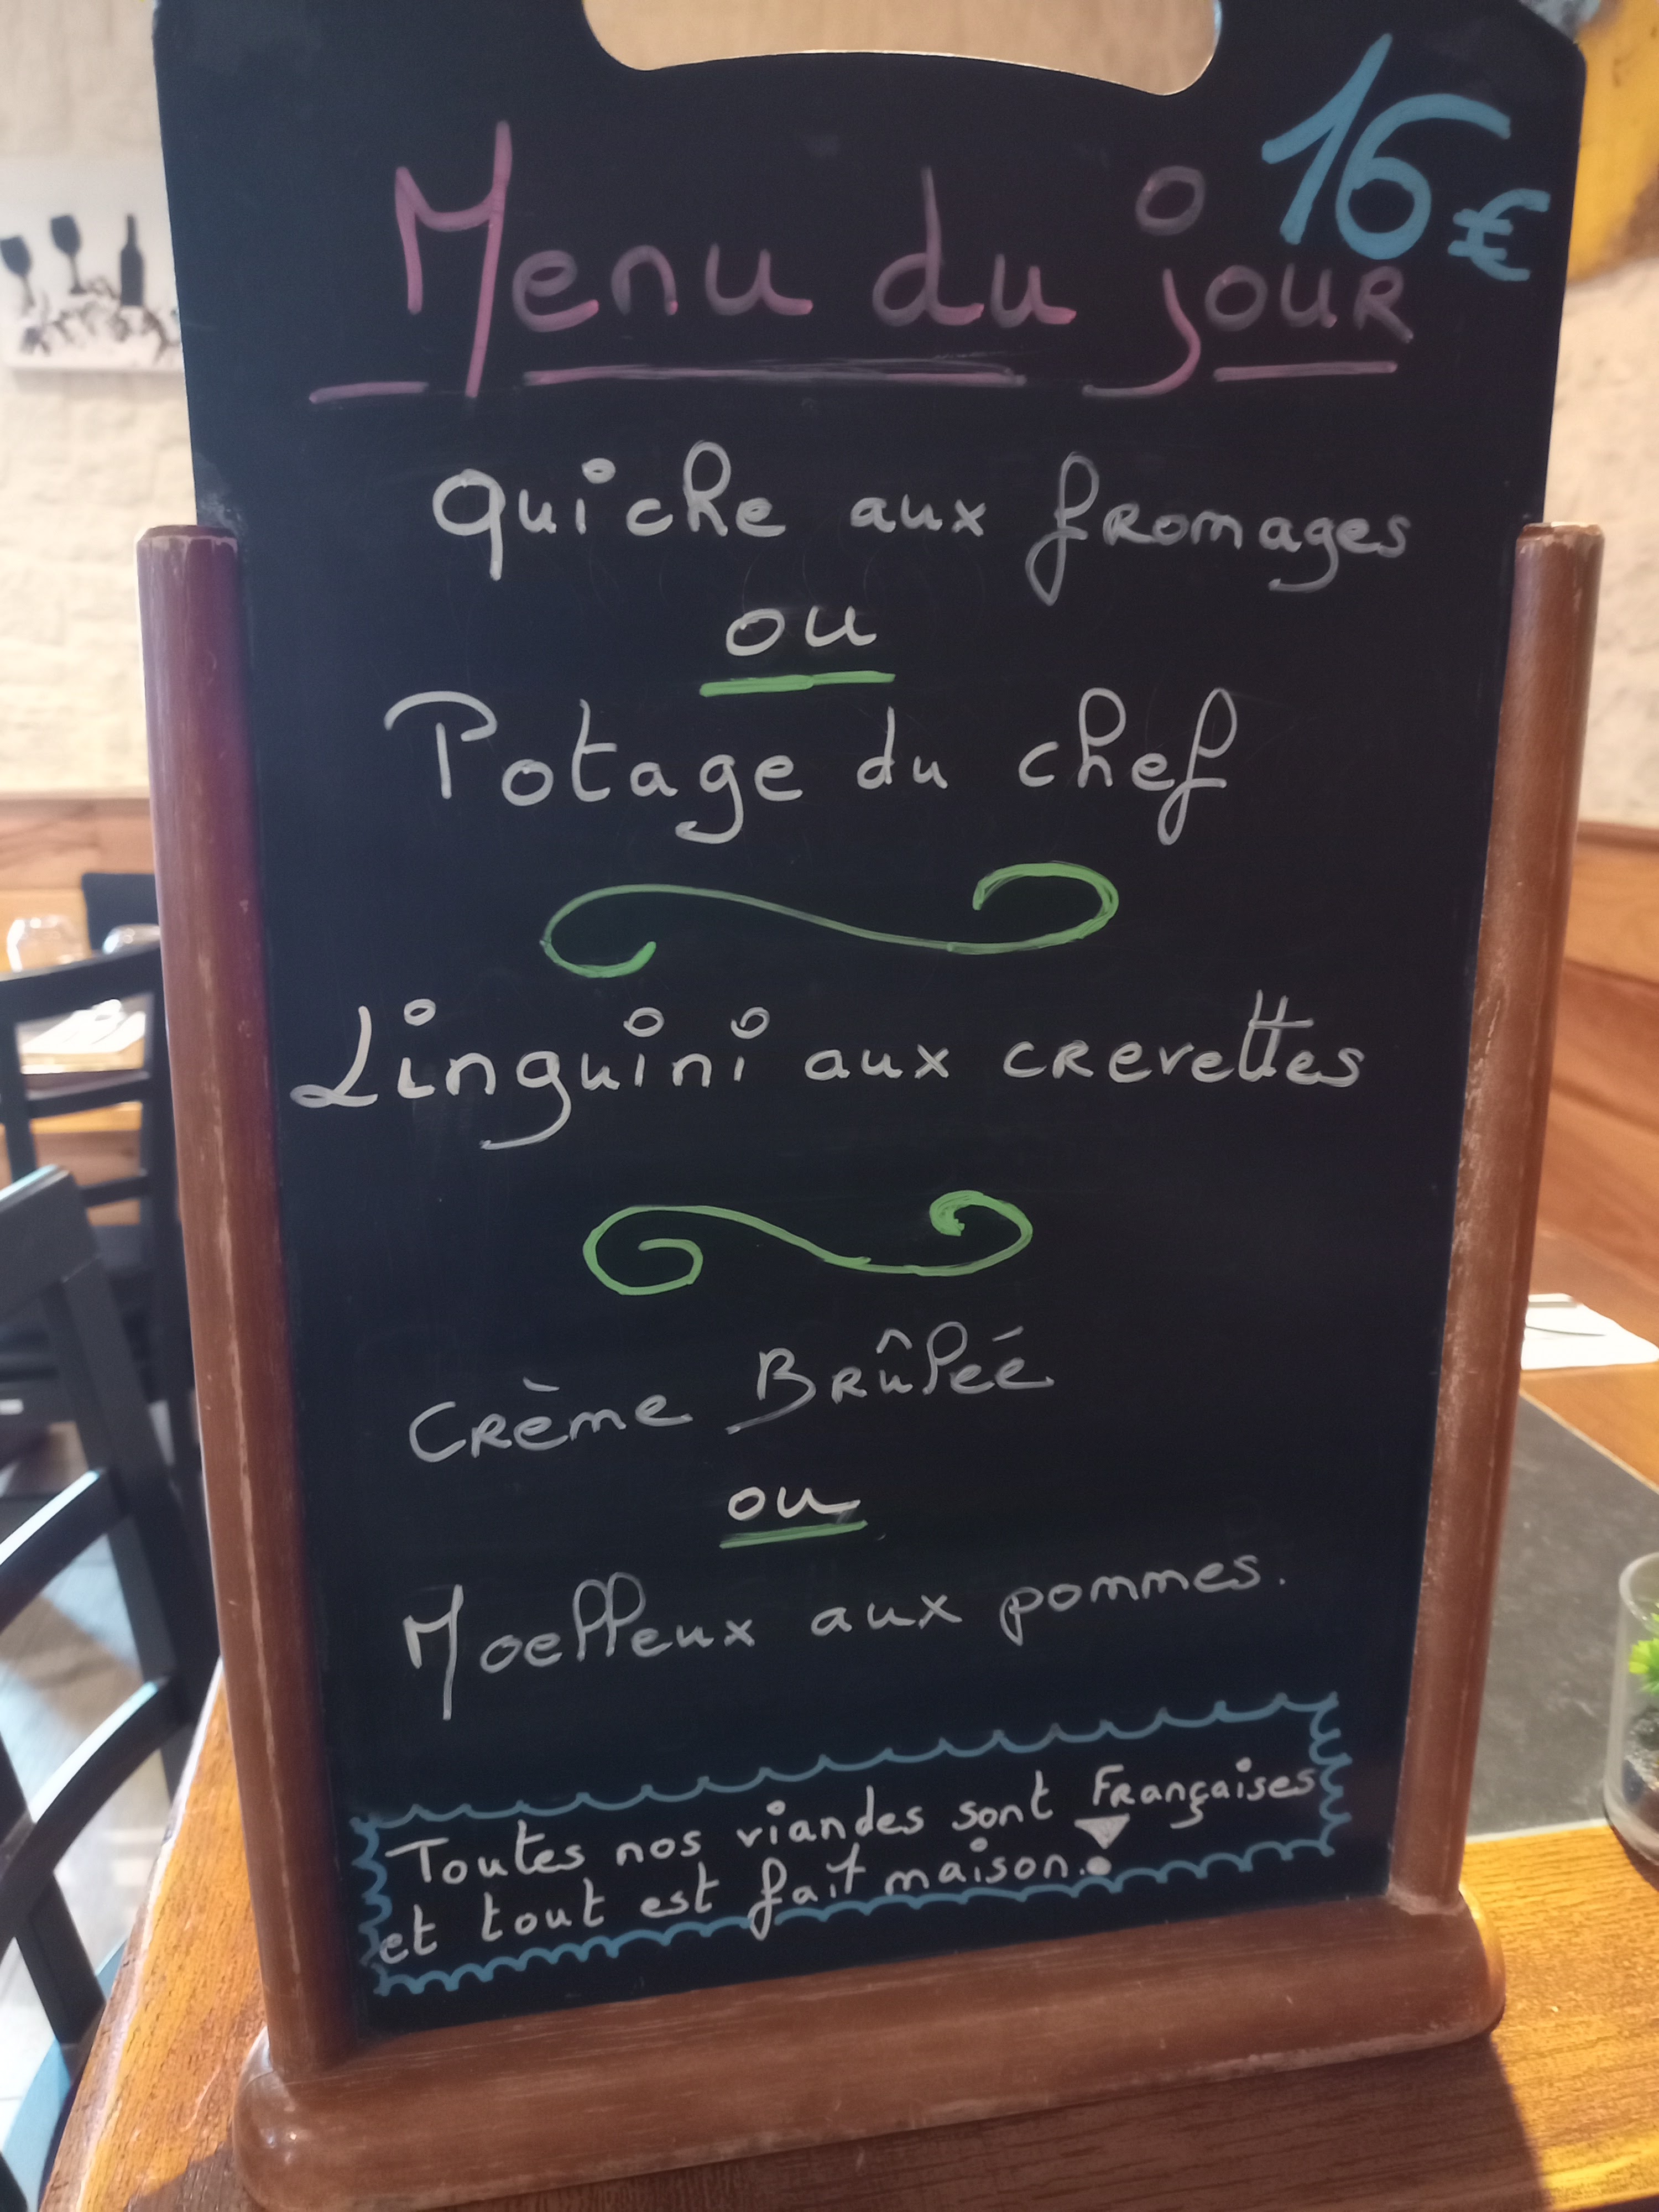 16€
Menu du jour
Quiche aux fromages
ou
Potage du chef
Linguini aux crevettes
Crème Brûleé
ou
Moelleux aux pommes.
Toutes nos viandes sont Françaises
et tout est fait maison.!